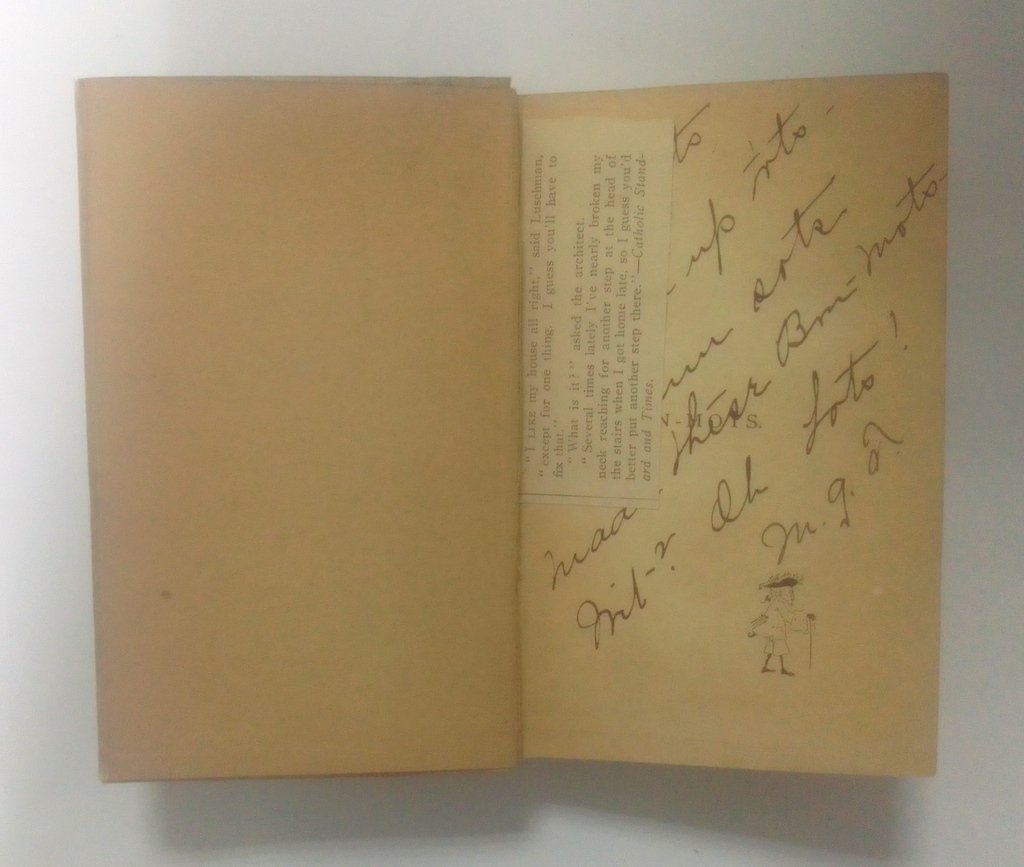 "I LIKE my house all right," said Luschman,
"except for one thing. I guess you'll have to
fix that."
"What is it?" asked the architect.
"Several times lately I've nearly broken my
neck reaching for another step at the head of
the stairs when I got home late, so I guess you'd
better put another step there."—Catholic Stand-
ard and Times.
up into-
sorts
these Bon-mots-
Wit-? Oh fots!
M. G.